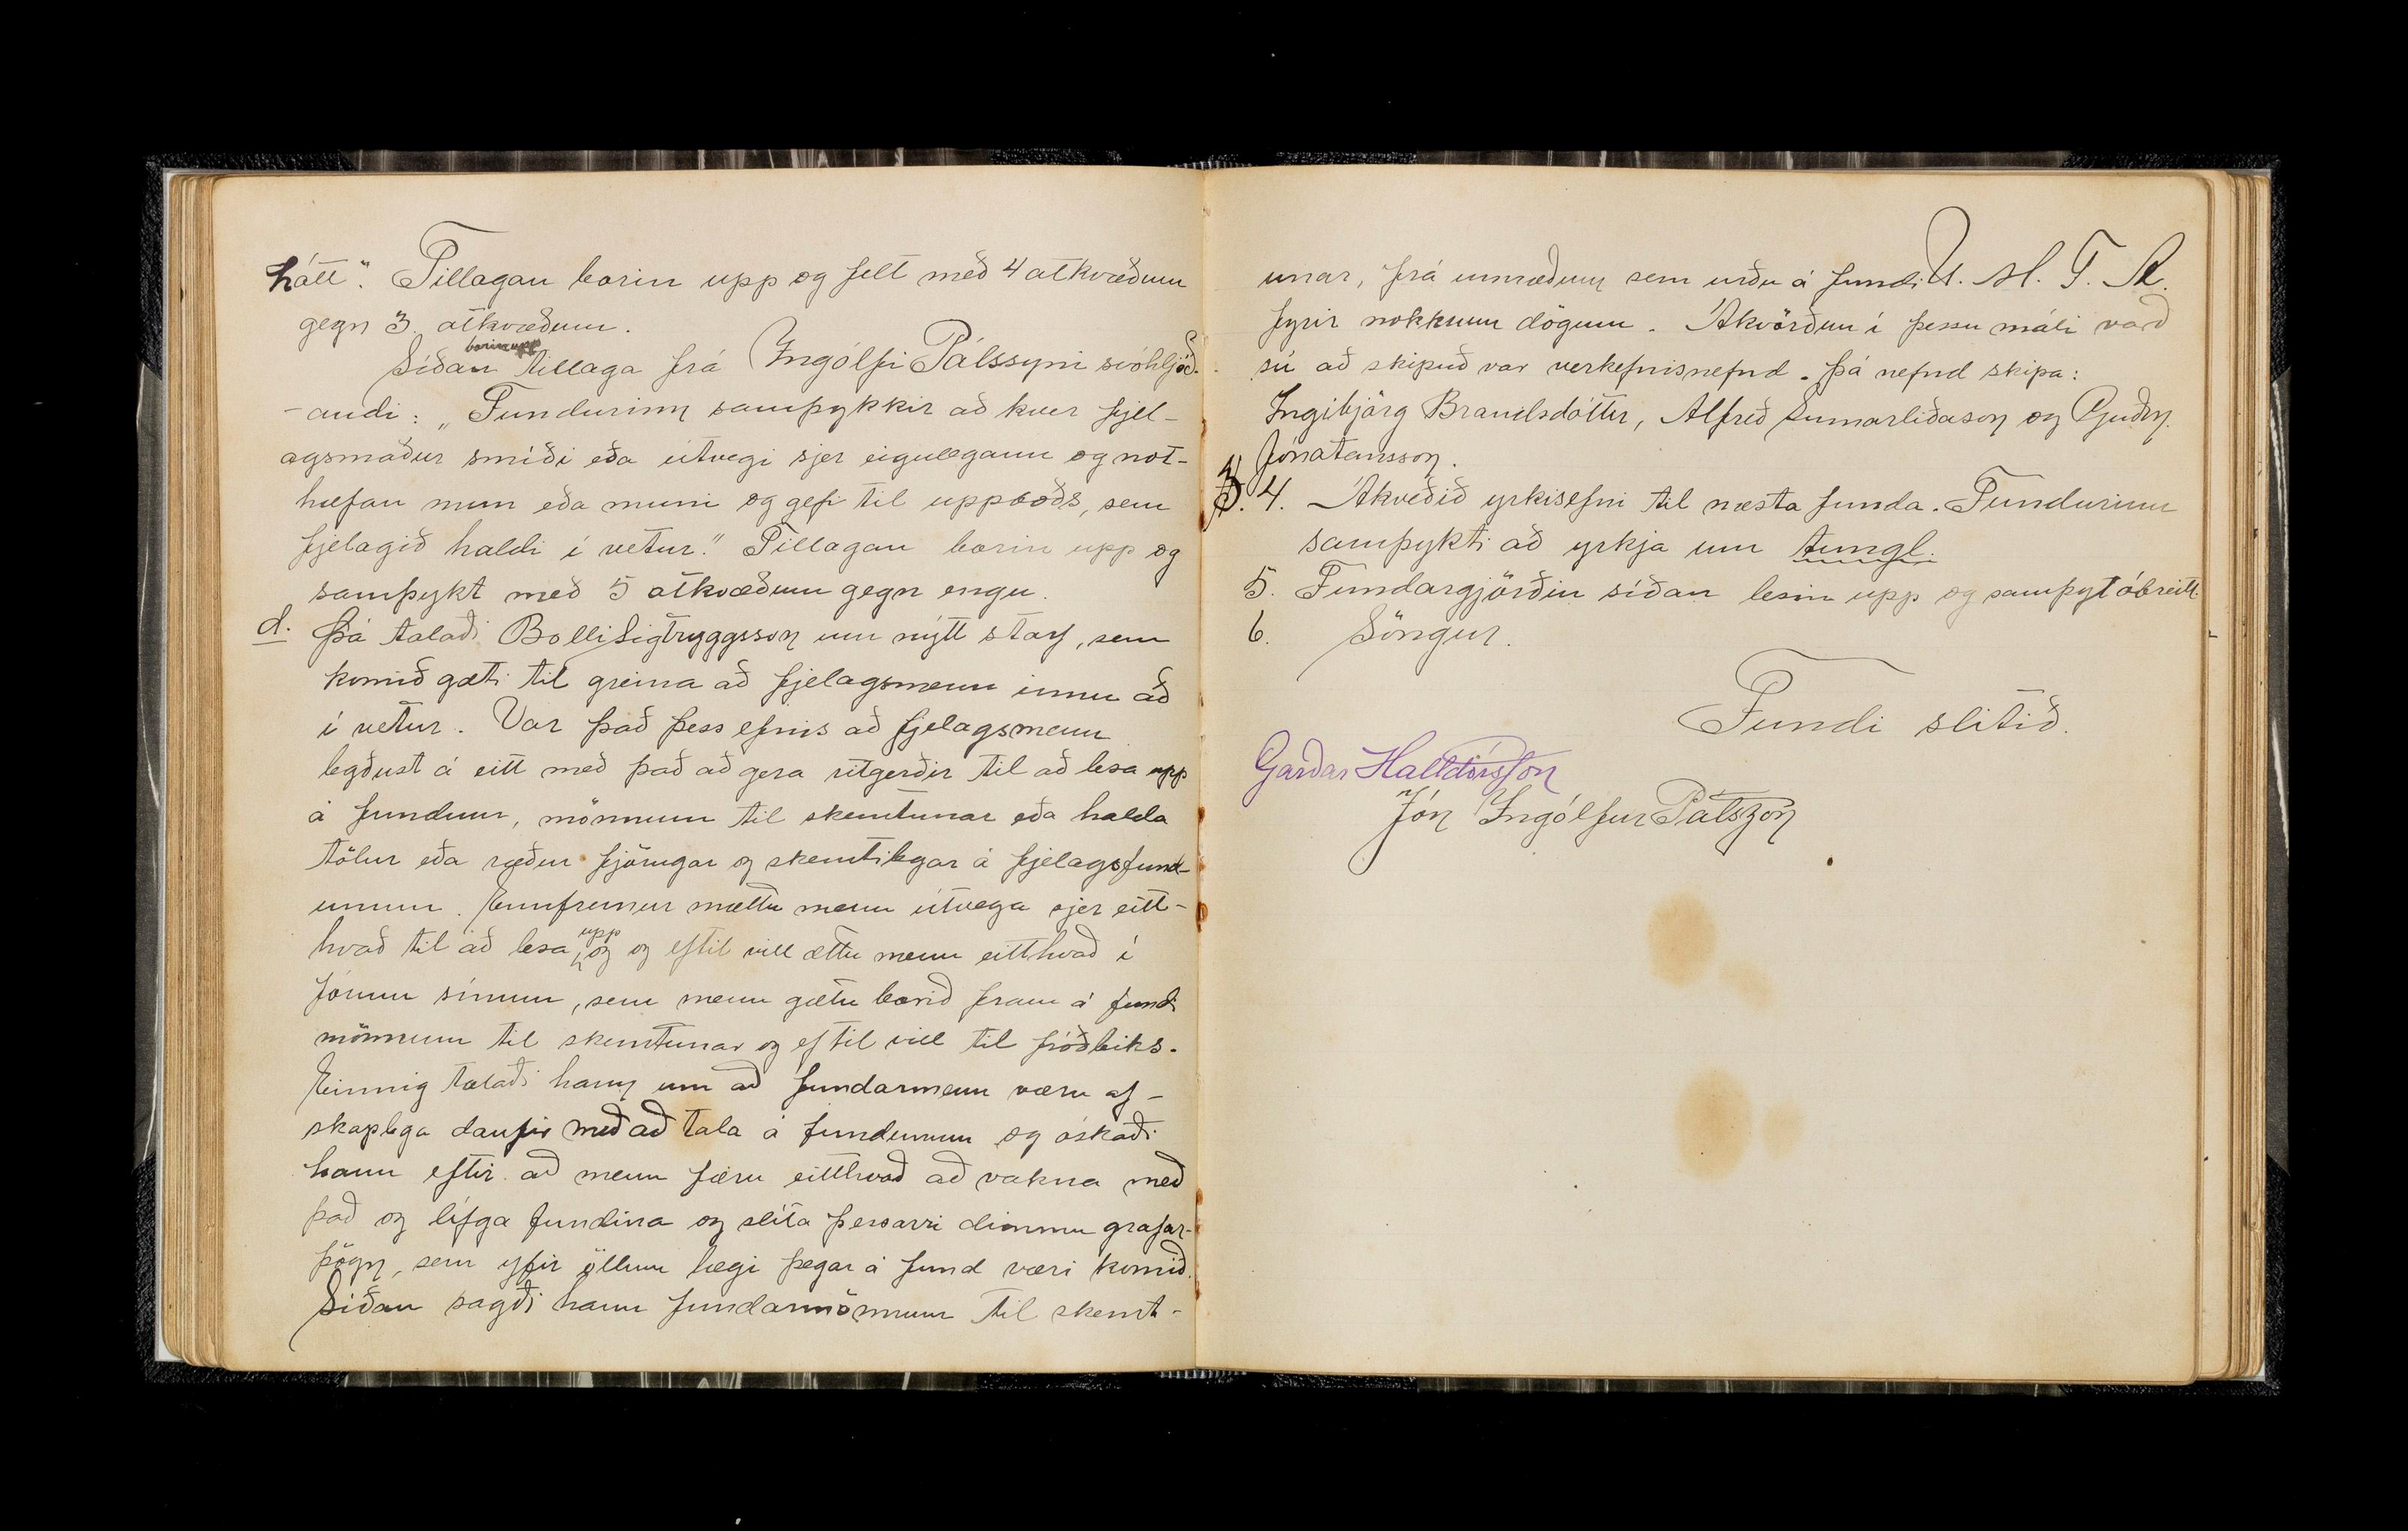 hátt". Tillagan borin upp og felt með 4 atkvæðum
gegn 3. atkvæðum.
borin upp
Síðan tillaga frá Ingólfi Pálssyni svohljóð-
-andi: "Fundurinn samþykkir að hver fjel-
agsmaður smíði eða útvegi sjer eigulegann og not-
hæfan mun eða muni og gefi til uppboðs, sem
fjelagið haldi í vetur." Tillagan borin upp og
samþykt með 5 atkvæðum gegn engu.
d. Þá talaði Bolli Sigtryggsson um nýtt starf, sem
komið gæti til greina að fjelagsmenn innu að
í vetur. Var það þess efnis að fjelagsmenn
legðust á eitt með það að gera ritgerðir til að lesa upp
á fundum, mönnum til skemtunar eða halda
tölur eða ræður fjörugar og skemtilegar á fjelagsfund-
unum. Ennfremur mættu menn útvega sjer eitt-
hvað til að lesa upp og og eftil vill ættu menn eitthvað í
fórum sínum, sem menn gætu borið fram á fundi
mönnum til skemtunar og ef til vill til fróðleiks.
Einnig talaði hann um að fundarmenn væru af-
skaplega daufir með að tala á fundunum og óskaði
hann eftir að menn færu eitthvað að vakna með
það og lífga fundina og slíta þessarri dimmu grafar-
þögn, sem yfir öllum lægi þegar á fund væri komið.
Síðan sagði hann fundarmönnum til skemt-
unar, frá umræðum sem urðu á fundi U. M. F. R.
fyrir nokkrum dögum. Ákvörðun í þessu máli varð
sú að skipuð var verkefnisnefnd. Þá nefnd skipa:
Ingibjörg Brandsdóttir, Alfreð Sumarliðason og Guðm.
Jónatansson.
4. Ákveðið yrkisefni til næsta funda. Fundurinn
samþykti að yrkja um tungl.
5. Fundargjörðin síðan lesin upp og samþykt óbreitt.
6. Söngur.
Fundi slitið.
Garðar Halldórsson
Jón Ingólfur Pálsson